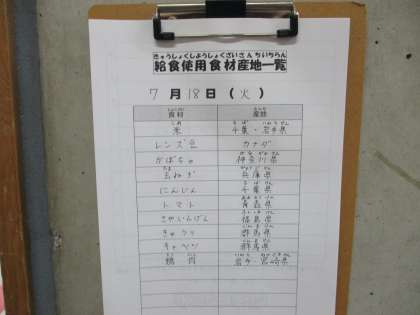 きゅうしょくしようしょくざいさんちいちらん
給食使用食材産地一覧
7月18日(火)
食材 産地
米 千葉・岩手県
レンズ豆 カナダ
かぼちゃ 神奈川県
玉ねぎ 兵庫県
にんじん 千葉県
トマト 青森県
さやいんげん 福島県
きゅうり 群馬県
キャベツ 群馬県
鶏肉 岩手・宮崎県